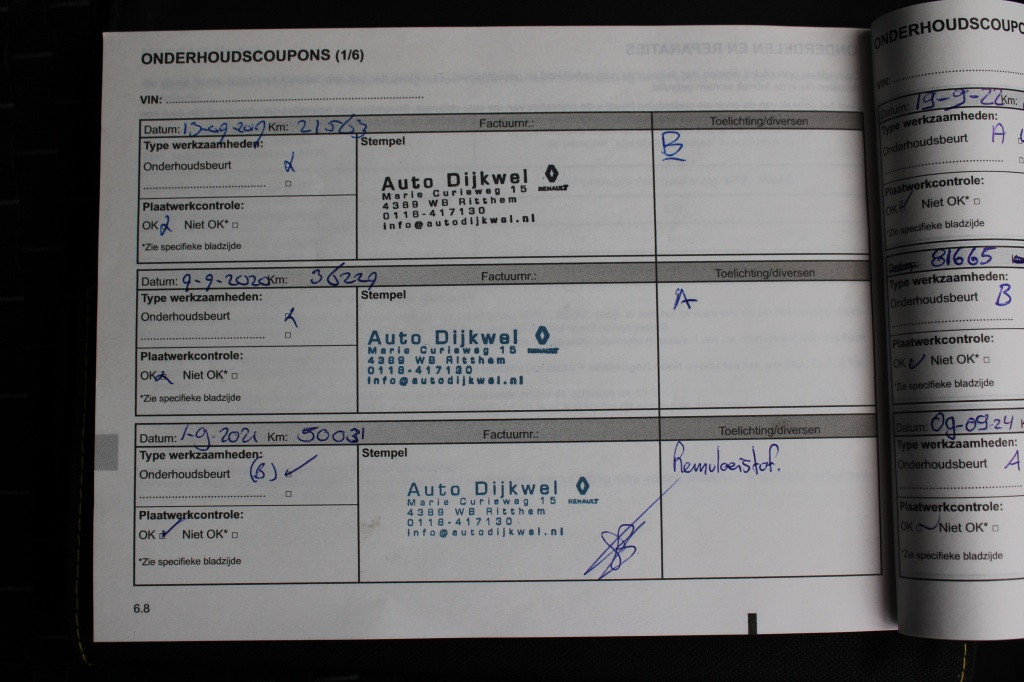 ONDERHOUDSCOUPONS (1/6)
VIN:
Datum: 13-09-2019 Km: 21563 Factuurnr.: Toelichting/diversen
Type werkzaamheden: Stempel B
Onderhoudsbeurt
Auto Dijkwel
Marie Curieweg 15 RENAULT
4389 WB Ritthem
0118-417130
info@autodijkwel.nl
Plaatwerkcontrole:
OK Niet OK*
*Zie specifieke bladzijde
Datum: 9-9-2020 Km: 36229 Factuurnr.: Toelichting/diversen
Type werkzaamheden: Stempel A
Onderhoudsbeurt
Auto Dijkwel
Marie Curieweg 15
4389 WB Ritthem
0118-417130
info@autodijkwel.nl
Plaatwerkcontrole:
OK Niet OK*
*Zie specifieke bladzijde
Datum: 1-9-2021 Km: 50031 Factuurnr.: Toelichting/diversen
Type werkzaamheden: Stempel Remvloeistof.
Onderhoudsbeurt (B)
Auto Dijkwel
Marie Curieweg 15 RENAULT
4389 WB Ritthem
0118-417130
info@autodijkwel.nl
Plaatwerkcontrole:
OK Niet OK*
*Zie specifieke bladzijde
6.8
ONDERHOUDSCOUPO
VIN:
Datum: 19-9-22 Km:
Type werkzaamheden:
Onderhoudsbeurt A
Plaatwerkcontrole:
OK Niet OK*
*Zie specifieke bladzijde
81665
Type werkzaamheden:
Onderhoudsbeurt B
Plaatwerkcontrole:
OK Niet OK*
*Zie specifieke bladzijde
Datum: 09-09-24
Type werkzaamheden:
Onderhoudsbeurt A
Plaatwerkcontrole:
OK Niet OK*
*Zie specifieke bladzijde